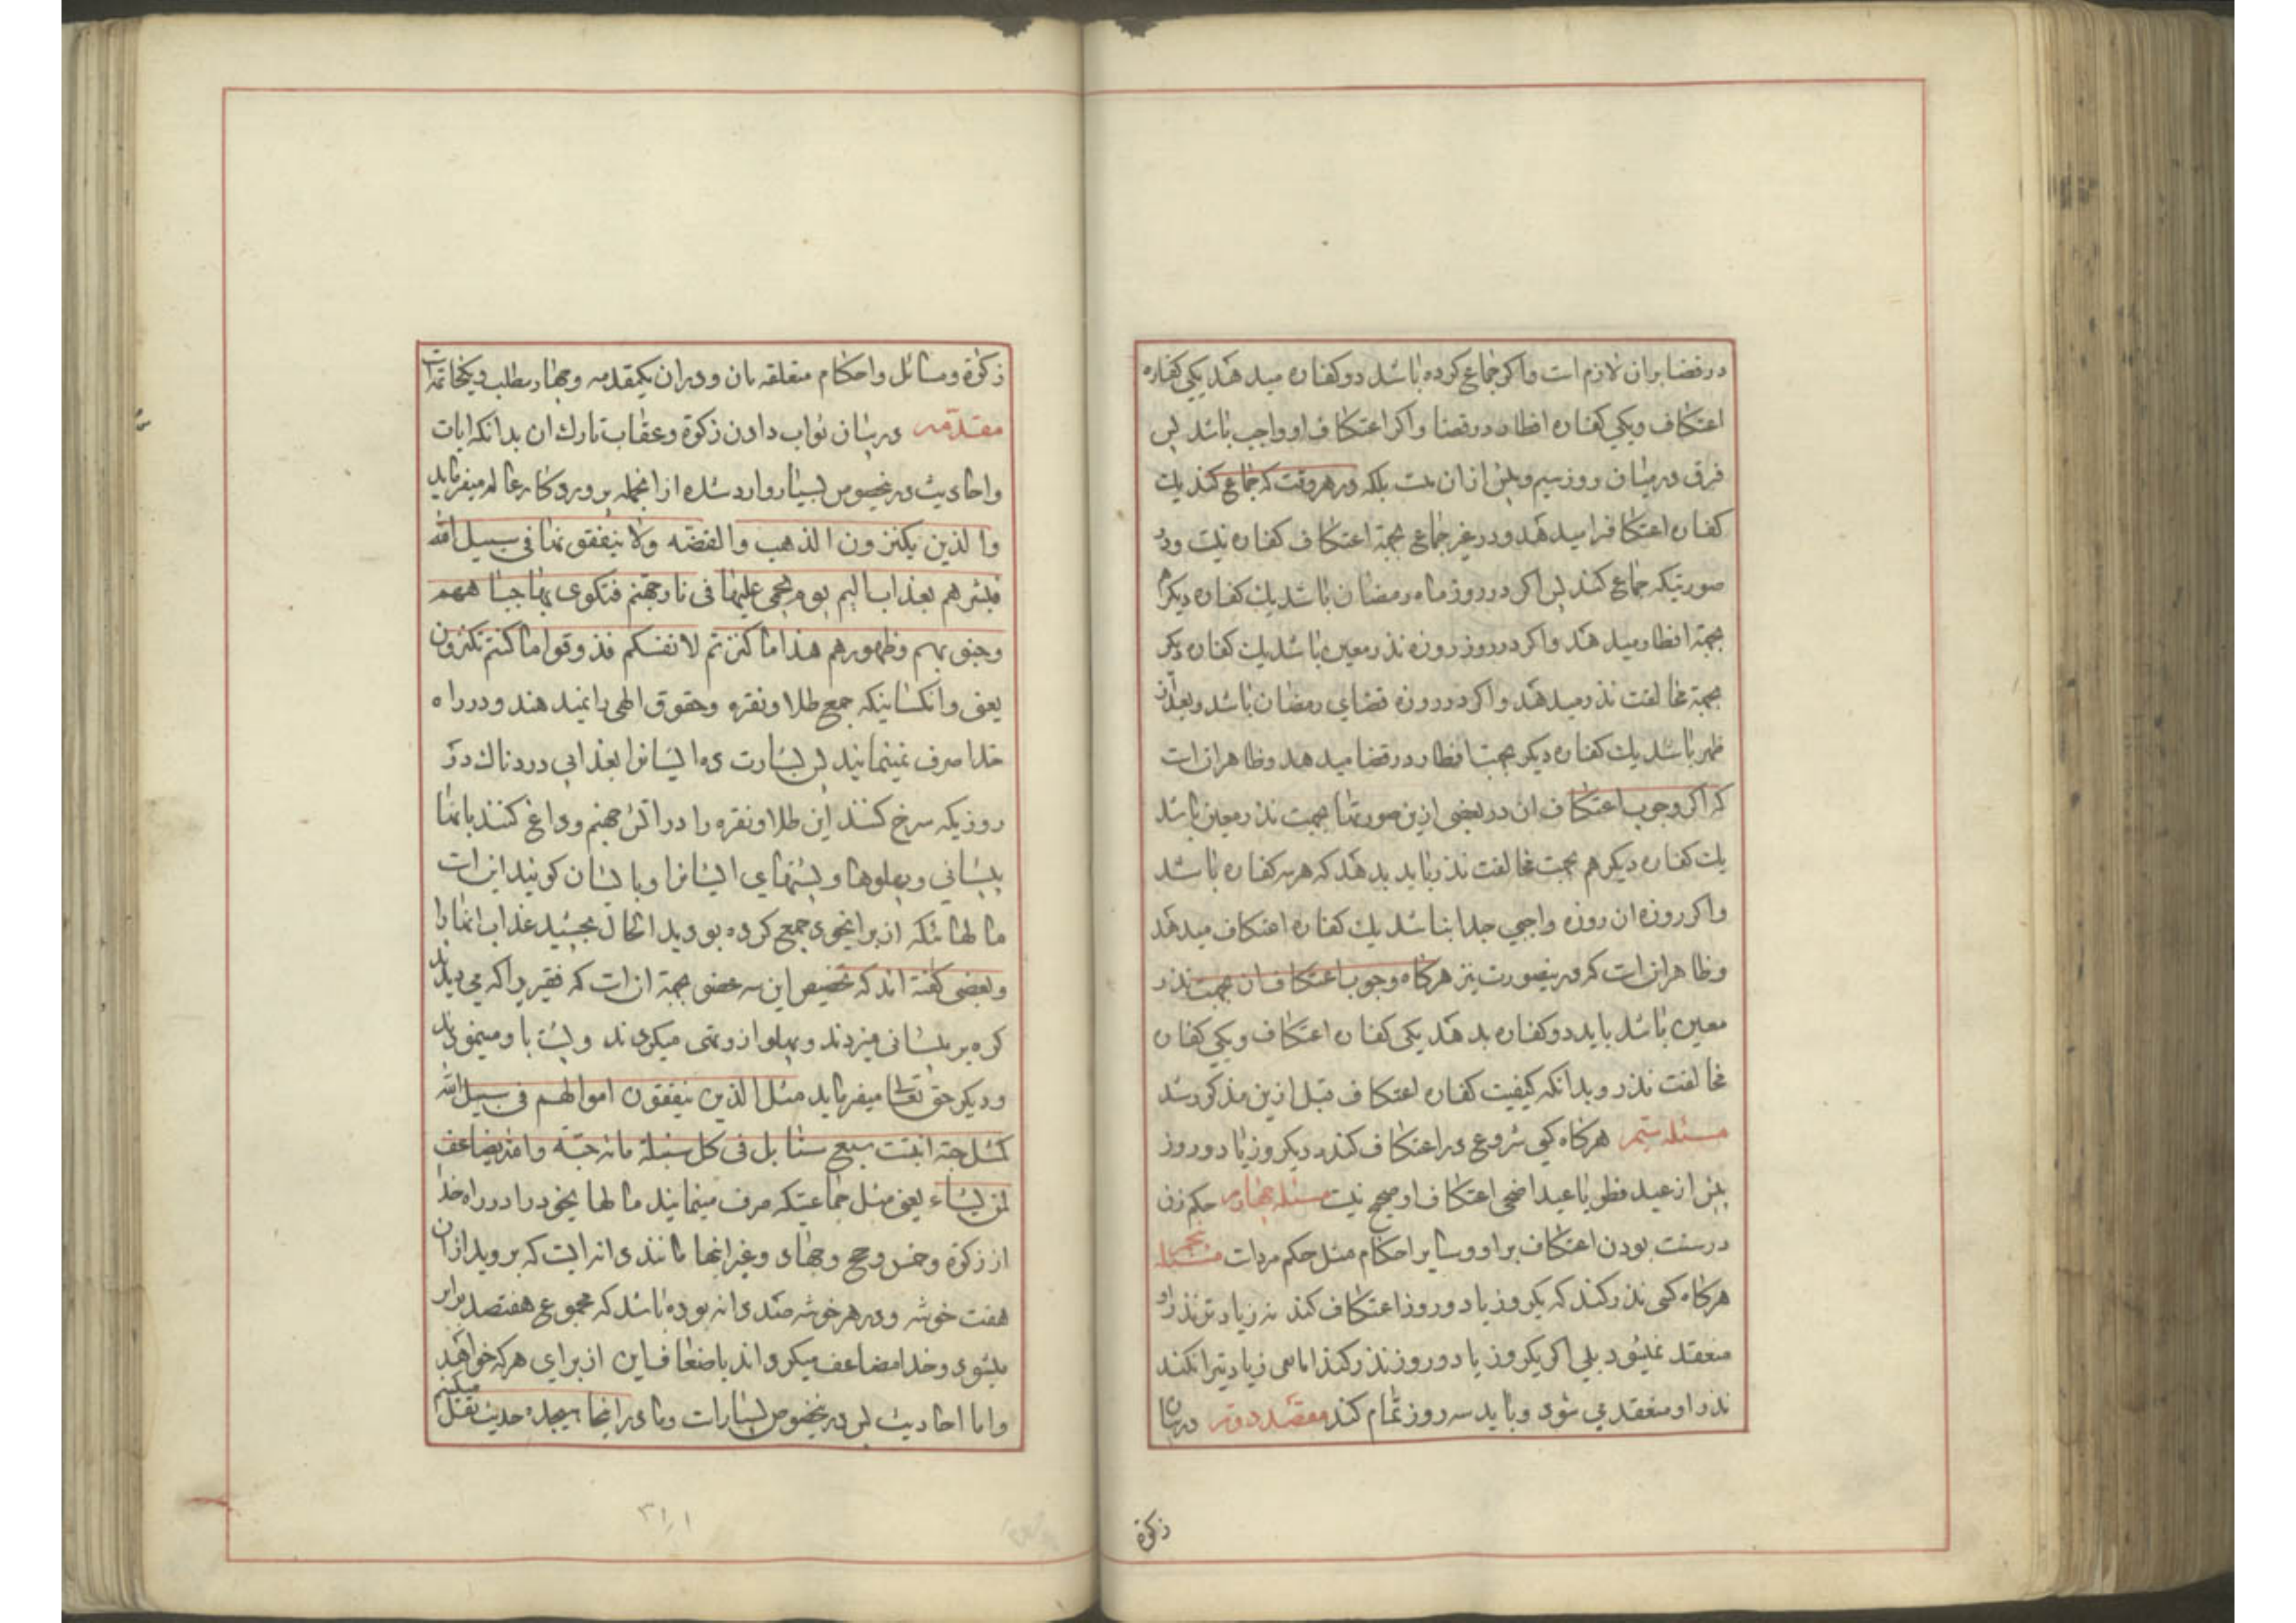 در قضا بران لازم است و اکر جماع کرده باشد دو کفاره میدهد یکی کفاره
اعتکاف و یکی کفاره افطار در قضا و اکر اعتکاف او واجب باشد پس
فرق در میان روز سیم و پیش ازان نیست بلکه در هر وقت که جماع کند یک
کفاره اعتکاف را میدهد و در غیر جماع بجهة اعتکاف کفاره نیست و در
صورتیکه جماع کند پس اکر در روز ماه رمضان باشد یک کفاره دیکر
بجهة افطار میدهد و اکر در روز روزه نذر معین باشد یک کفاره دیکر
بجهة مخالفت نذر میدهد و اکر در روزه قضای رمضان باشد و بعد از
ظهر باشد یک کفاره دیکر بجهت افطار در قضا میدهد و ظاهر انست
که اکر وجوب اعتکاف ان در بعضی ازین صورتها بجهت نذر معین باشد
یک کفاره دیکر هم بجهت مخالفت نذر باید بدهد که هر سه کفاره باشد
و اکر روزه ان روزه واجبی جدا نباشد یک کفاره اعتکاف میدهد
و ظاهر انست که درینصورت نیز هرکاه وجوب اعتکاف ان بجهت نذر
معین باشد باید دو کفاره بدهد یکی کفاره اعتکاف و یکی کفاره
مخالفت نذر و بدانکه کیفیت کفاره اعتکاف قبل ازین مذکور شد
مسئله سیم هرکاه کسی شروع در اعتکاف کند در یکروز یا دو روز
پیش از عید فطر یا عید اضحی اعتکاف او صحیح نیست مسئله چهارم حکم زن
درست بودن اعتکاف براو و سایر احکام مثل حکم مردست مسئله پنجم
هرکاه کسی نذر کند که یکروز یا دو روز اعتکاف کند نه زیادتر نذر او
منعقد نمیشود بلی اکر یکروز یا دو روز نذر کند اما نفی زیادتر را نکند
نذر او منعقد می شود و باید سه روز تمام کند مقصد دوم در بیان
زکوة
زکوة و مسائل و احکام متعلقه بان و دران یکمقدمه و چهار مطلب و یکخاتمه است
مقدّمه در بیان ثواب دادن زکوة و عقاب تارک ان بدانکه ایات
و احادیث درینخصوص بسیار وارد شده ازانجمله پروردکار عالم میفرماید
والذین یکنزون الذهب والفضه ولا ینفقونها فی سبیل الله
فبشرهم بعذاب الیم یوم یحمی علیها فی نار جهنم فتکوی بها جباههم
وجنوبهم وظهورهم هذا ما کنزتم لانفسکم فذوقوا ما کنتم تکنزون
یعنی و انکسانیکه جمع طلا و نقره و حقوق الهی را نمیدهند و در راه
خدا صرف نمینمایند پس بشارت ده ایشانرا بعذابی دردناک در
روزیکه سرخ کنند این طلا و نقره را در اتش جهنم و داغ کنند بانها
پیشانی و پهلوها و پشتهای ایشانرا و بایشان کویند این است
مالهائیکه از برای خود جمع کرده بودید الحال بچشید عذاب انها را
و بعضی کفته اند که تخصیص این سه عضو بجهة ان است که فقیر را که می دیدند
کره بر پیشانی میزدند و پهلو ازو تهی میکردند و پشت باو مینمودند
و دیکر حق تعالی میفرماید مثل الذین ینفقون اموالهم فی سبیل الله
کمثل حبة انبتت سبع سنابل فی کل سنبلة مائه حبّه والله یضاعف
لمن یشاء یعنی مثل جماعتیکه صرف مینمایند مالهای خود را در راه خدا
از زکوة و خمس و حج و جهاد و غیر انها مانند دانه ایست که بروید ازان
هفت خوشه و در هر خوشه صد دانه بوده باشد که مجموع هفتصد برابر
میشود و خدا مضاعف میکرداند باضعاف این از برای هرکه خواهد
و اما احادیث پس درینخصوص بسیارست و ما در اینجا هیجده حدیث نقل میکنیم
۳۱۱